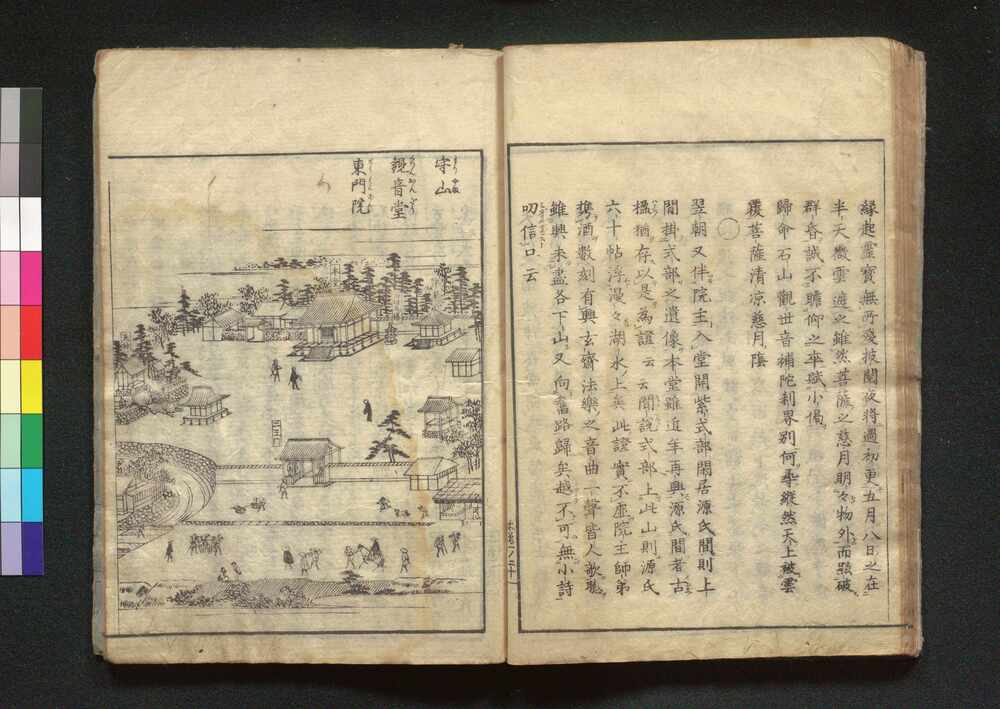 縁起靈寶無所殘披閲夜將過初更五月八日之在
半天微雲遮之雖然菩薩之慈月明々物外而照破
群昏誠不瞻仰之乎賦小偈
歸命石山觀世音補陀刹界別何尋縱然天上被雲
覆菩薩清凉慈月陰
翌朝又伴院主入堂開紫式部閑居源氏間則上
間掛式部之遺像本堂雖近年再興源氏間者古
楹猶存以是為證云云聞說式部上此山則源氏
六十帖浮漫々湖水上矣此證實不虚院主師弟
携酒數刻有興玄齋法樂之音曲一聲皆人歌聴
雖興未盡各下山又向舊路歸矣越不可無小詩
叨信口云
守山
觀音堂
東門院
二王門